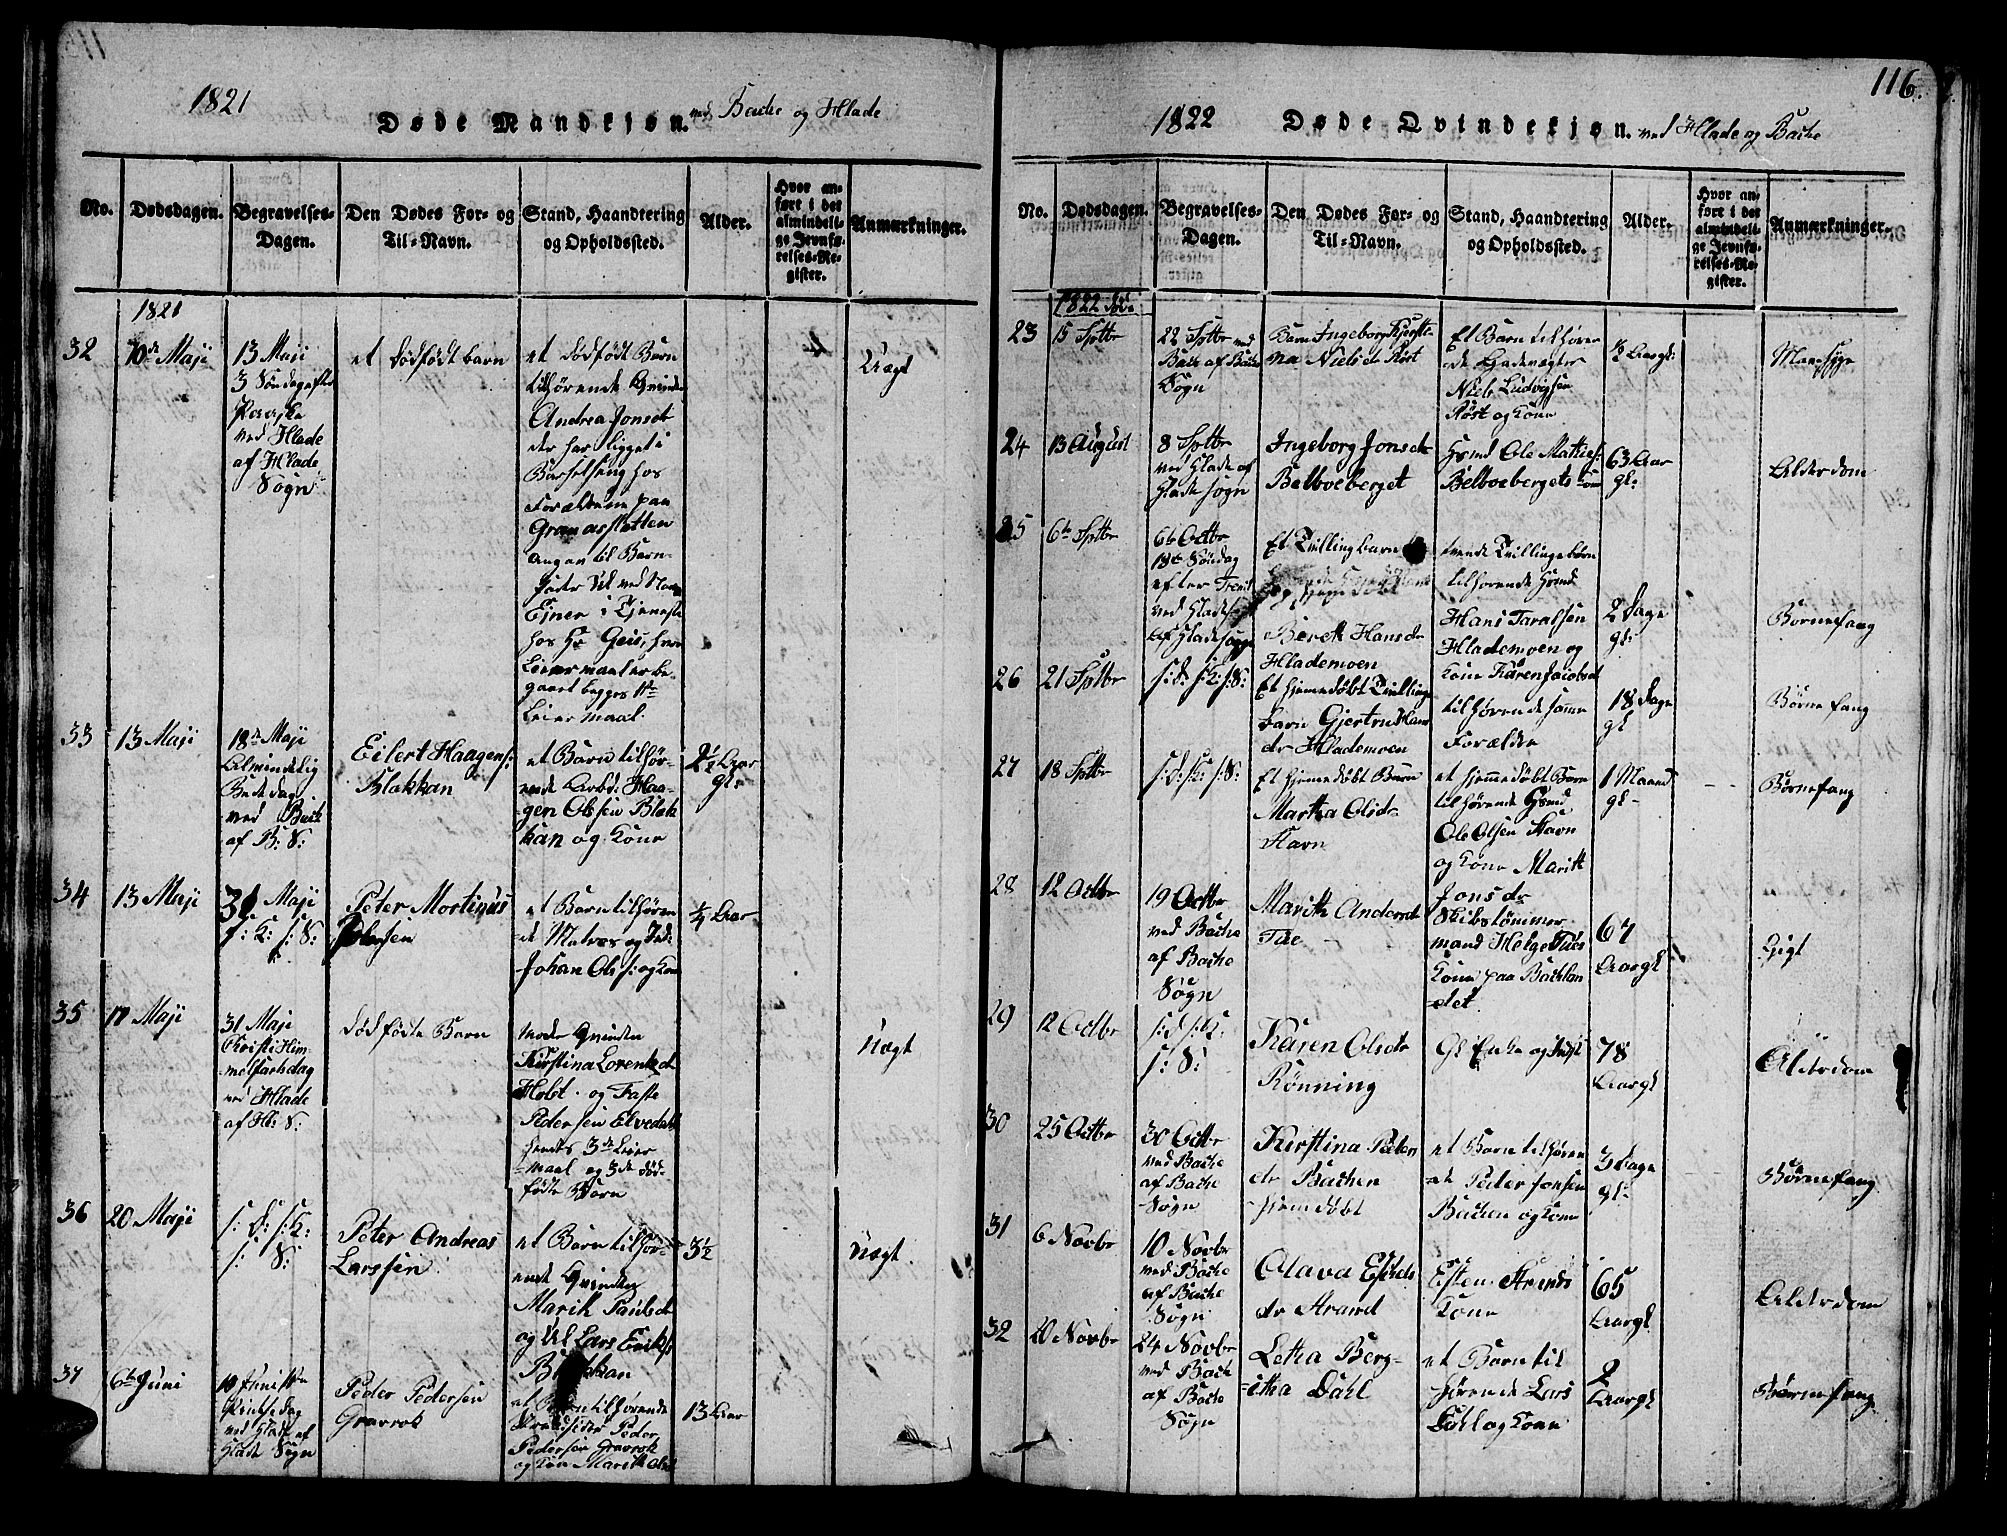 1821
Døde Mandkjøn. ved Bache og Hlade
No.
Dødsdagen.
Begravelses-
Dagen.
Den Dødes For- og
Til-Navn.
Stand, Haandtering
og Opholdssted.
Alder.
Hvor an-
ført i det
almindeli-
ge Jevnfø-
relses-Re-
gister.
Anmærkninger.
1821
32
10de Maji
13 Maji
3 Søndag efter
Paaske
ved Hlade
af Hlade
Sogn
et dødfødt barn
et dødfødt Barn
tilhørende Qvinden
Andrea Jonsdt
der har ligget i
Barselseng hos
Forældrene paa
angav til Barn-
Ejner i Tjeneste
hos Hr Geis,
Leiermaal er be-
gaaet begges 1te
Leiermaal.
33
13 Maji
18de Maji
Almindelig
Bededag
ved Bach
af B: S:
Eilert Haagens:
Blakkan
et Barn tilhør-
ende Arbd: Haa-
gen Olssen Blak
kan og Kone
2½ Aar
Gl:
34
13 Maji
31 Maji
s: K: s: S:
Peter Mortinus
Johansen
et Barn tilhøren
de Matros og Ind:
Johan Ols: og Kone
¼ Aar
35
17 Maji
31 Maji
Christi Him-
melfartsdag
ved Hlade
af Hl: S:
dødfødte Barn
Moder Qvinden
Kirstina Lorentzdt
Holbt. og Faste
Pedersen Elvedal
hendes 3de Leier
maal og 3de død-
fødte Barn
Uægt
36
20 Maji
s: D: s: K:
s: S:
Peter Andreas
Larssen
et Barn tilhør-
ende Qvinden
Marit Paulsdt
og UK Lars Eriks:
Blakkan
3½
Uægt
37
6te Juni
10 Juni 1te
Pintsedag
ved Hlade af
Hlade Sogn
Peder Pedersen
Gravrok
et Barn tilhørende
Strandsider Peder
Pedersen Gravrok
og Kone Marit Olsd
13 Aar
116.
1822
Døde Qvindekjøn. ved Hlade og Bache
No.
Dødsdagen.
Begravelses-
Dagen.
Den Dødes For- og
Til-Navn.
Stand, Haandtering
og Opholdssted.
Alder.
Hvor an-
ført i det
almindeli-
ge Jevnfø-
relses-Re-
gister.
Anmærkninger.
1822
23
15 Sptbr
22 Sptbr ved
Bache af Bache
Sogn
Barn Ingeborg Kjersti-
na Nielsdt Røst
Et Barn tilhøren
de Gadevægter
Niels Ludvigsen
Røst og Kone
½ Aargl:
24
13 August
8 Sptbr
ved Hlade af
Hlade sogn
Ingeborg Jonsdt
Belboeberget
Hsmd Ole Mathies:
Belboebergets
63 Aar
gl:
Alderdom
25
6te Sptbr
18de Søndag
efter Trenit
ved Hlade
af Hlade sogn
Et Tvilling barn
Berit Hansdr
Hlademoen
tvende Tvillingebørn
tilhørende Hsmd
Hans Taralsen
Hlademoen og
Kone Karen Jacobsd
2 Dage
gl:
Børnefang
26
21 Sptbr
s: d: s: K: s: S:
Et hjemedøbt Tvillinge
barn Gjertru Hans
dr Hlademoen
tilhørende samme
Forælder
18 Dage
gl
Børnefang
27
18 Sptbr
s: d: s: K: s: S:
Et hjemedøbt Barn
Martha Olsdr
Havn
et hjemedøbt Barn
tilhørende Hsmd
Ole Olsen Havn
og Kone Maritt
Jonsdr
1 Maaned
gl
Børnefang
28
12 Octbr
19 Octbr
ved Bache
af Bache
Sogn
Marith Andersd
Tue
Skibstømmer
mand Helge Tues
Kone paa Backlan
det
67
Aargl
Gigt
29
12 Octbr
s: d: s: K:
s: S:
Karen Olsdr
Rønning
Gl Enke og Inds
78
Aargl
Alderdom
30
25 Octbr
30 Octbr
ved Bache
af Bache
Sogn
Kirstina Peders
dr Bachen
hjemdøbt
et Barn tilhøren
de Peder Jonsen
Bachen og Kone
3 Dage
gl:
Børnefang
31
6 Novbr
10 Novbr
ved Bache
af Bache
Sogn
Olava Estens
dr Strand
Esten Strands
Kone
65
Aargl
Alderdom
32
20 Novbr
24 Novbr
ved Bache
af Bache
Sogn
Letha Berg-
itha Dahl
et Barn til
hørende Lars
Dahl og Kone
2
Aargl
Børnefang